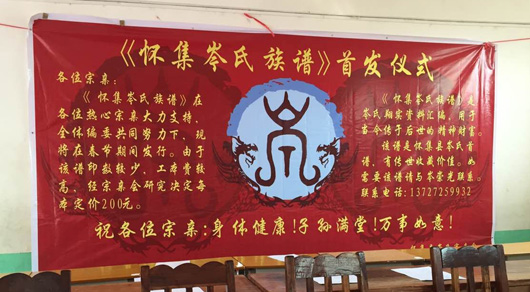 《怀集岑氏族谱》首发仪式
各位宗亲:
《怀集岑氏族谱》在
各位热心宗亲大力支持、
全体编委共同努力下，现
将在春节期间发行。由于
该谱印数较少、工本费较
高，经宗亲会研究决定每
本定价200元。
《怀集岑氏族谱》是
岑氏翔实资料汇编，用于
当今传于后世的精神财富。
该谱是怀集县岑氏首
谱，有传世收藏价值。如
需要该谱请与岑荣光联系
联系电话:13727259932
祝各位宗亲:身体健康!子孙满堂!万事如意!